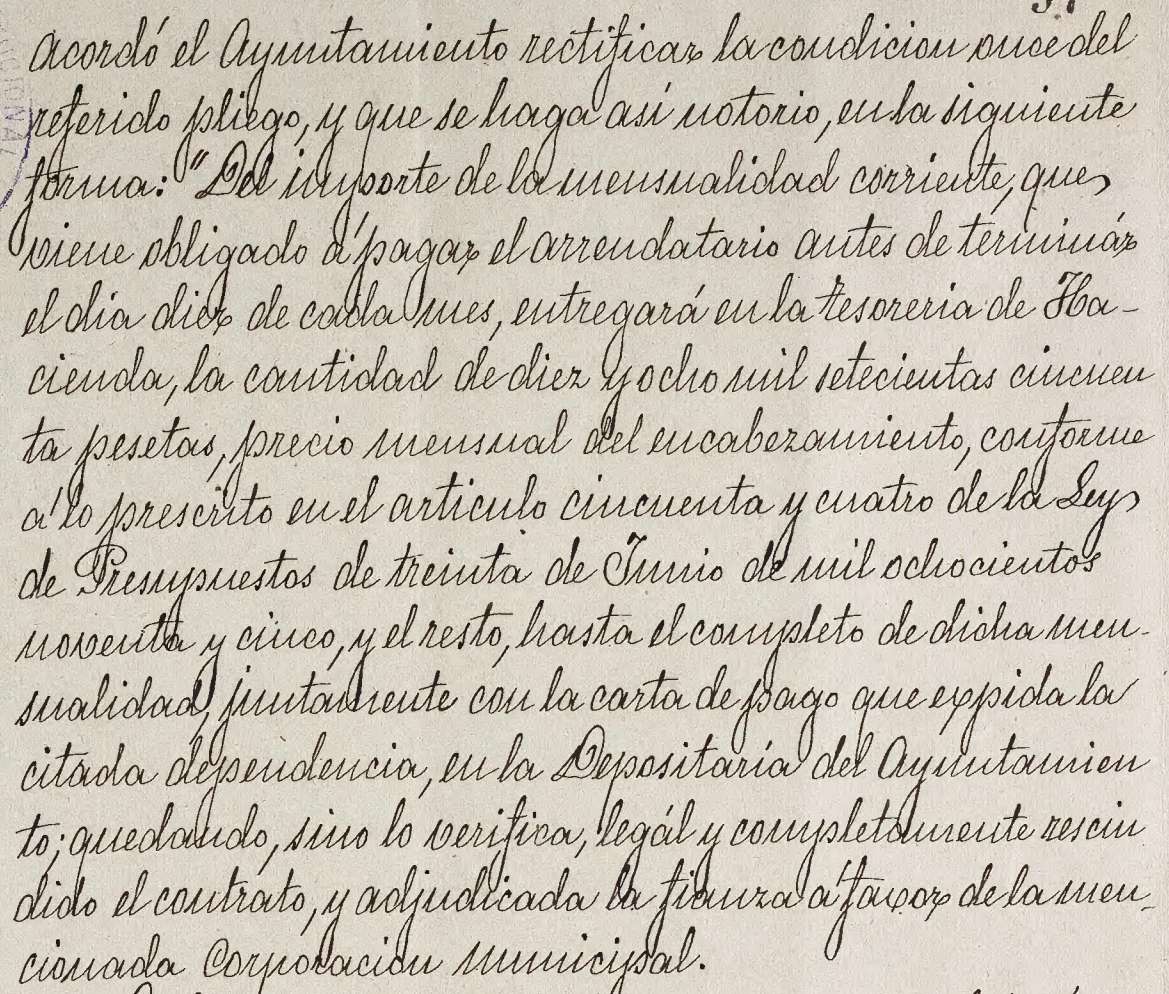 acordó el Ayuntamiento rectificar la condicion once del
referido pliego, y que se haga así notorio, en la siguiente
forma: "Del importe de la mensualidad corriente, que
viene obligado á pagar el arrendatario antes de terminár
el día diez de cada mes, entregará en la tesoreria de Ha-
cienda, la cantidad de diez y ocho mil setecientas cincuen
ta pesetas, precio mensual del encabezamiento, conforme
á lo prescrito en el articulo cincuenta y cuatro de la Ley
de Presupuestos de treinta de Junio de mil ochocientos
noventa y cinco, y el resto, hasta el completo de dicha men-
sualidad, juntamente con la carta de pago que expida la
citada dependencia, en la Depositaría del Ayuntamien
to; quedando, sino lo verifica, legál y completamente rescin
dido el contrato, y adjudicada la fianza á favor de la men-
cionada Corporacion municipal.